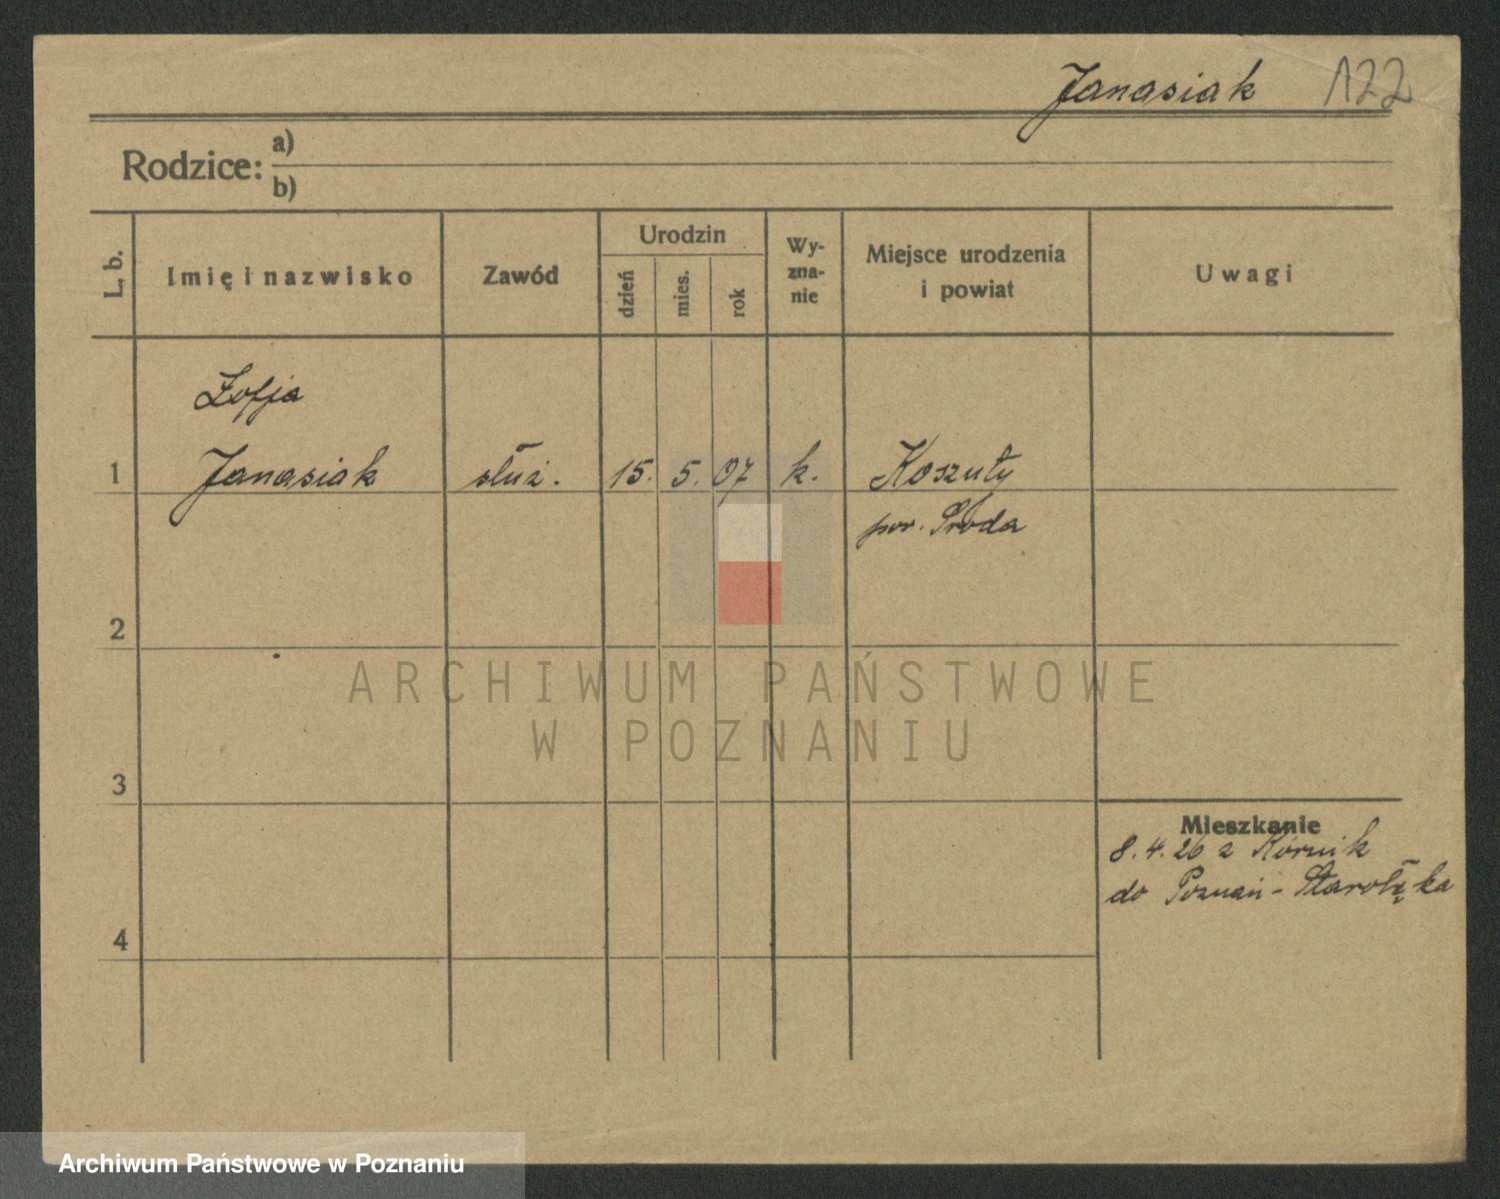 Janasiak 122
Rodzice: a)
b)
L. b.
Imię i nazwisko
Zawód
Urodzin
dzień
mies.
rok
Wy-
zna-
nie
Miejsce urodzenia
i powiat
Uwagi
Zofja
1 Janasiak służ. 15. 5. 07 k. Koszuty
pow. Środa
2
3
4
Mieszkanie
8.4.26 z Kórnik
do Poznań-Starołęka
ARCHIWUM PAŃSTWOWE
W POZNANIU
Archiwum Państwowe w Poznaniu